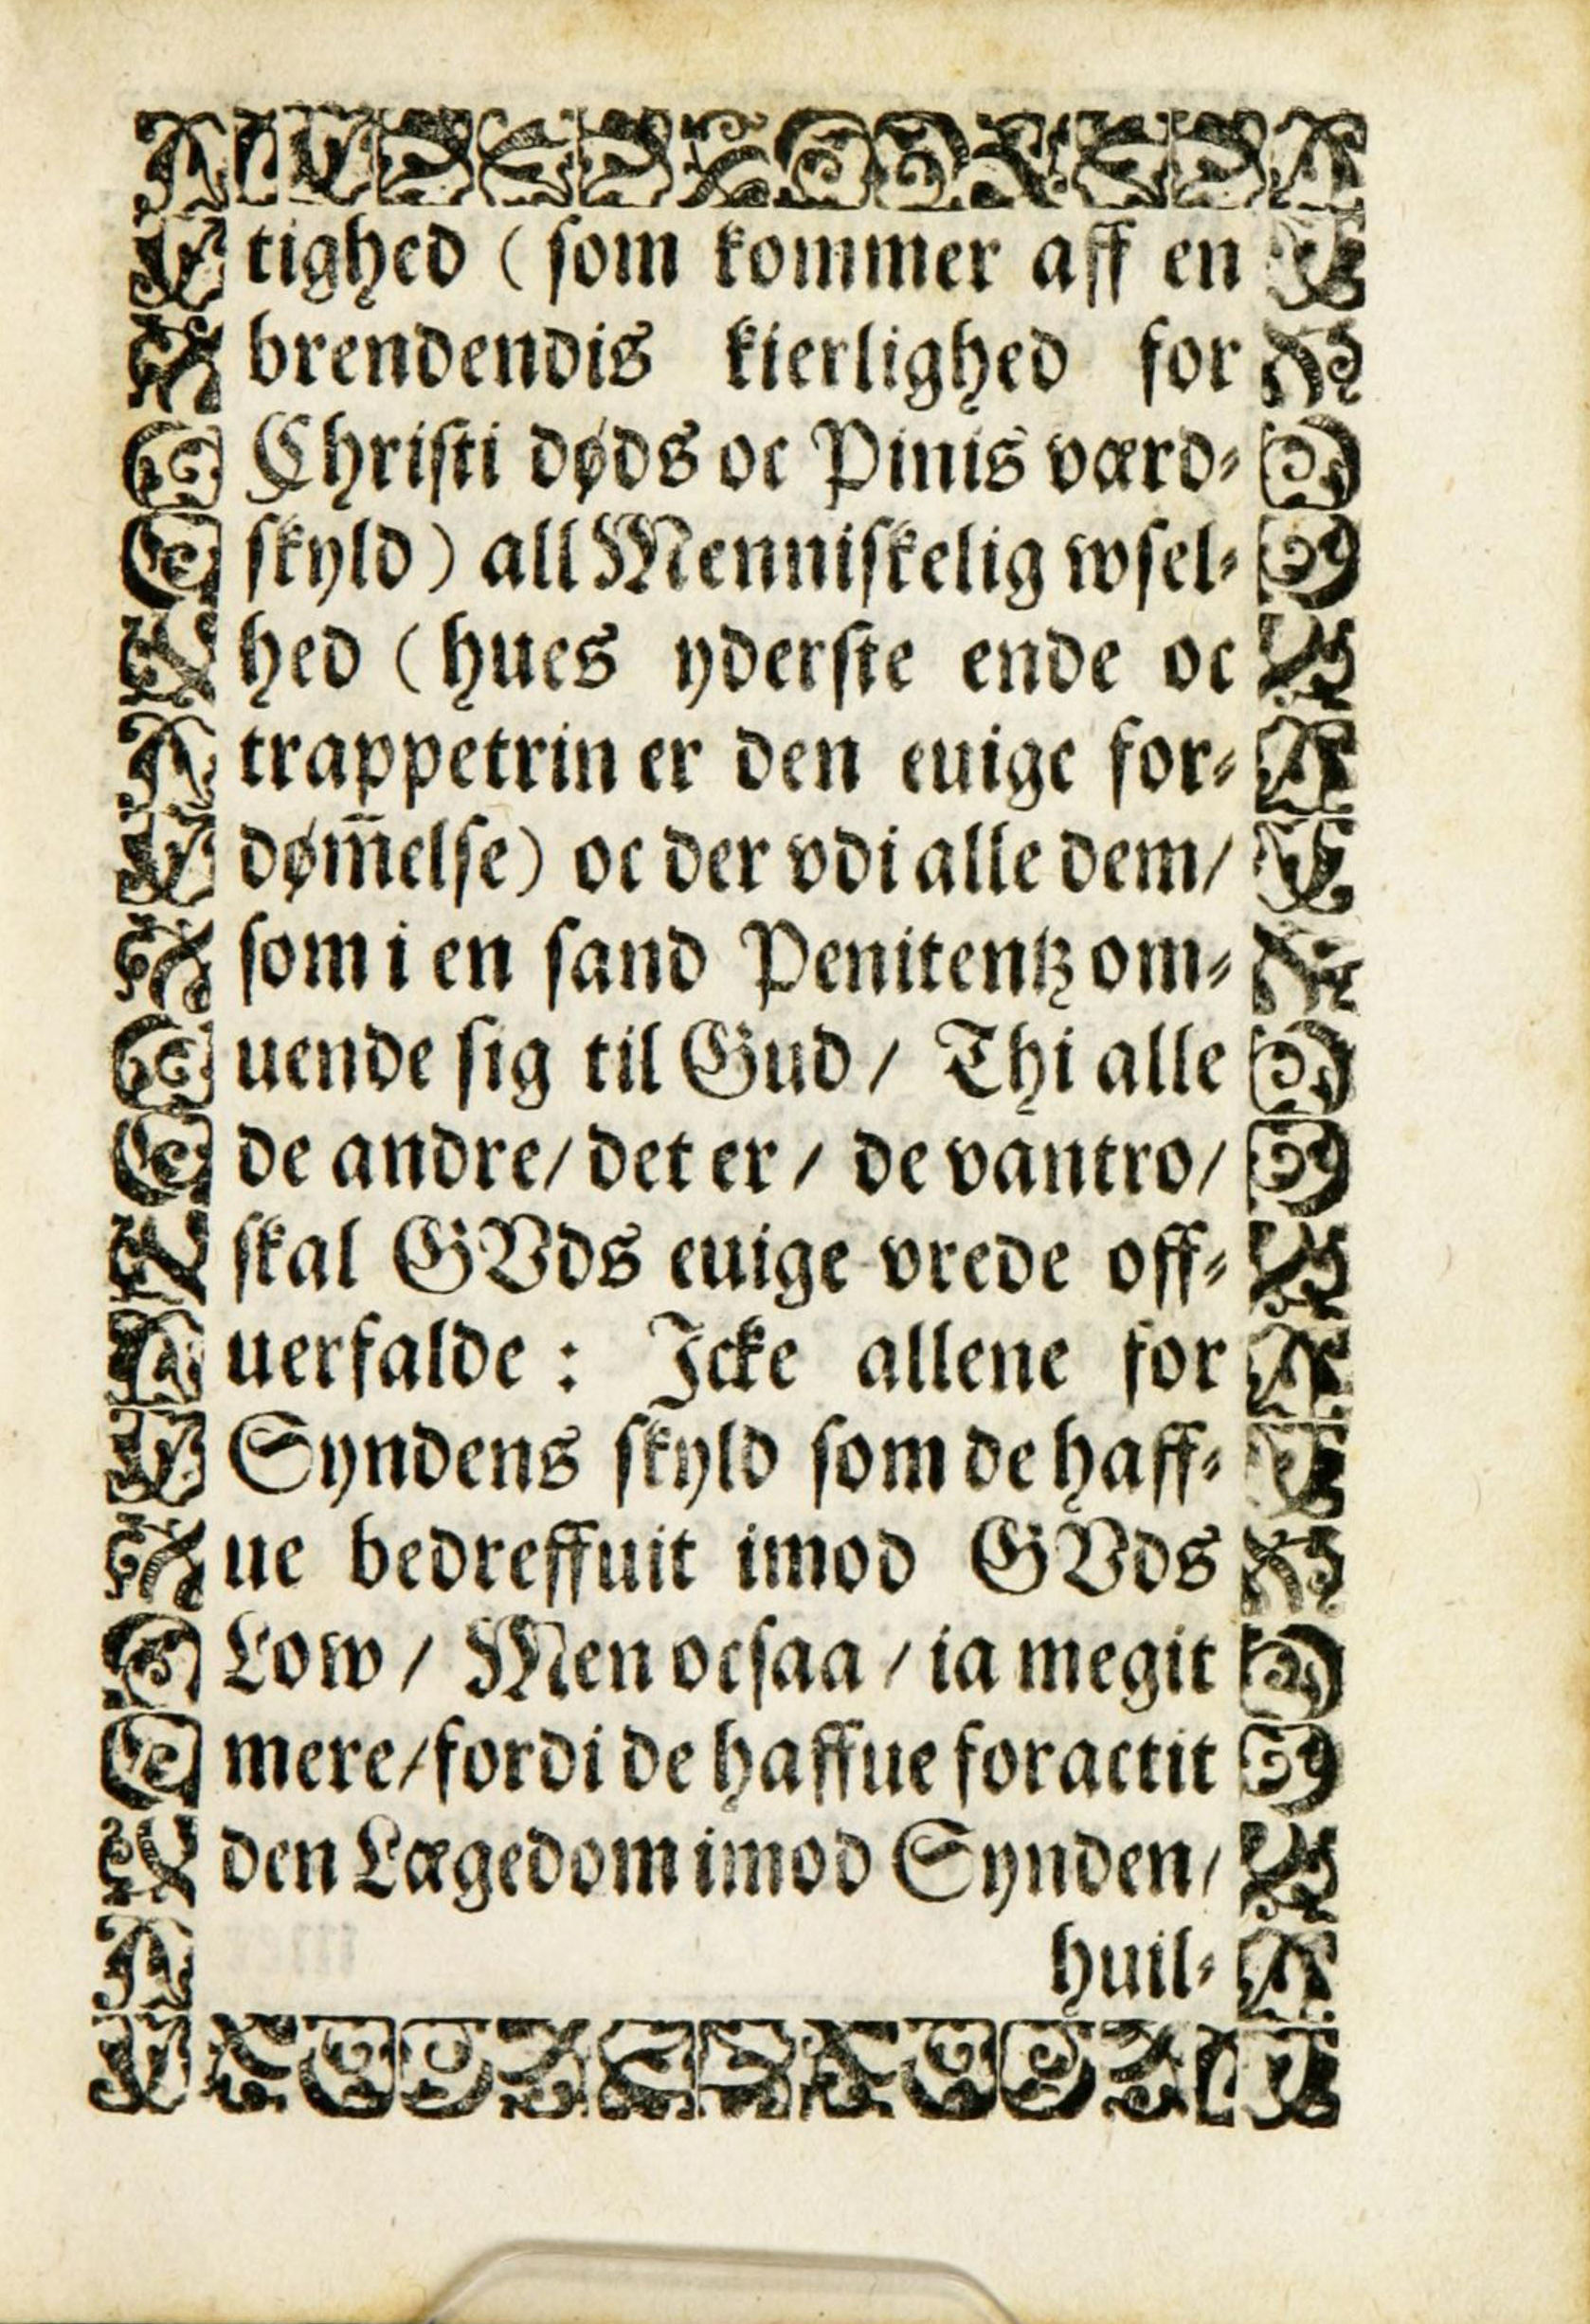 tighed (som kommer aff en
brendendis kierlighed for
Christi døds oc Pinis værd⸗
skyld) all Menniskelig wsel⸗
hed (hues yderste ende oc
trappetrin er den euige for⸗
døm̅else) oc der vdi alle dem/
som i en sand Penitentz om⸗
uende sig til Gud/ Thi alle
de andre/ det er/ de vantro/
skal GVds euige vrede off⸗
uerfalde: Icke allene for
Syndens skyld som de haff⸗
ue bedreffuit imod GVds
Low/ Men ocsaa/ ia megit
mere/ fordi de haffue foractit
den Lægedom imod Synden/
huil⸗